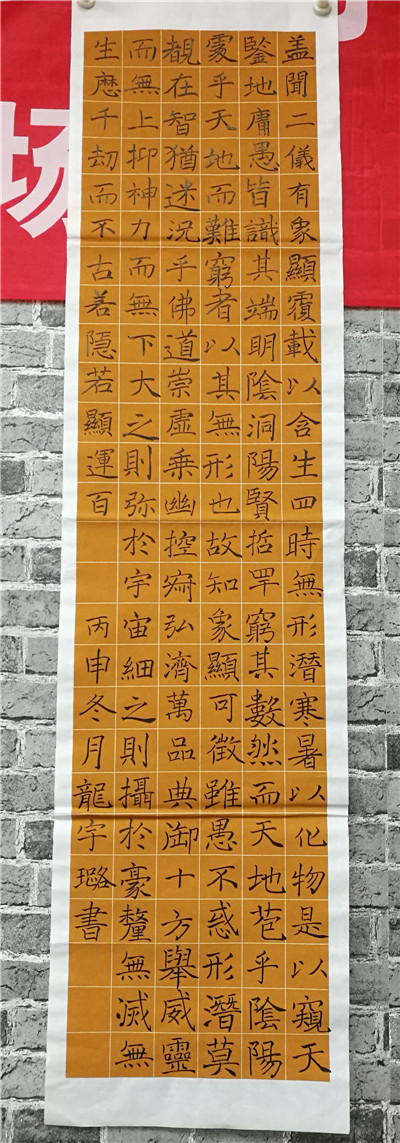 场
盖聞二儀有象顯覆載以含生四時無形潛寒暑以化物是以窺天
鑒地庸愚皆識其端明陰洞陽賢哲罕窮其數然而天地苞乎陰陽
處乎天地而難窮者以其無形也故知象顯可徵雖愚不惑形潛莫
覩在智猶迷況乎佛道崇虛乘幽控寂弘濟萬品典御十方舉威靈
而無上抑神力而無下大之則弥於宇宙細之則攝於豪釐無滅無
生歷千劫而不古若隱若顯運百
丙申冬月龍宇璐書